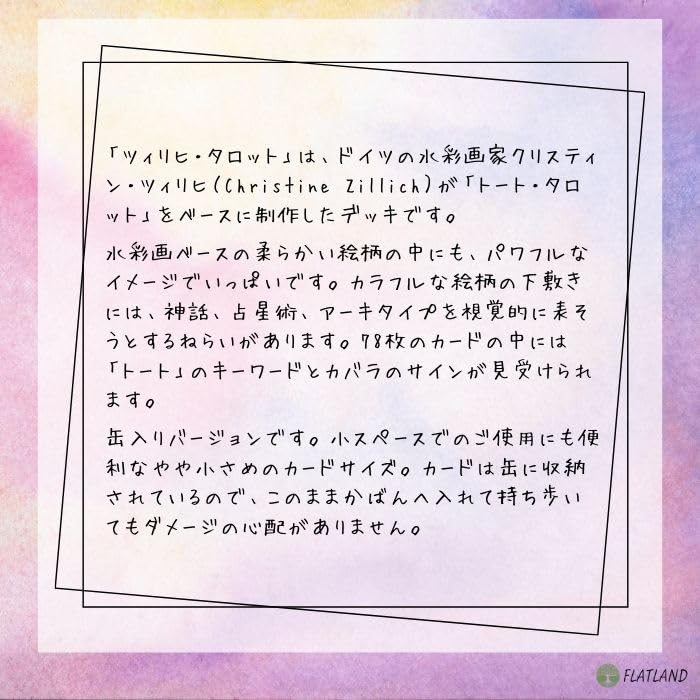 「ツィリヒ・タロット」は、ドイツの水彩画家クリスティ
ン・ツィリヒ(Christine Zillich)が「トート・タロ
ット」をベースに制作したデッキです。
水彩画ベースの柔らかい絵柄の中にも、パワフルな
イメージでいっぱいです。カラフルな絵柄の下敷き
には、神話、占星術、アーキタイプを視覚的に表そ
うとするねらいがあります。78枚のカードの中には
「トート」のキーワードとカバラのサインが見受けられ
ます。
缶入りバージョンです。小スペースでのご使用にも便
利なやや小さめのカードサイズ。カードは缶に収納
されているので、このままかばんへ入れて持ち歩い
てもダメージの心配がありません。
FLATLAND